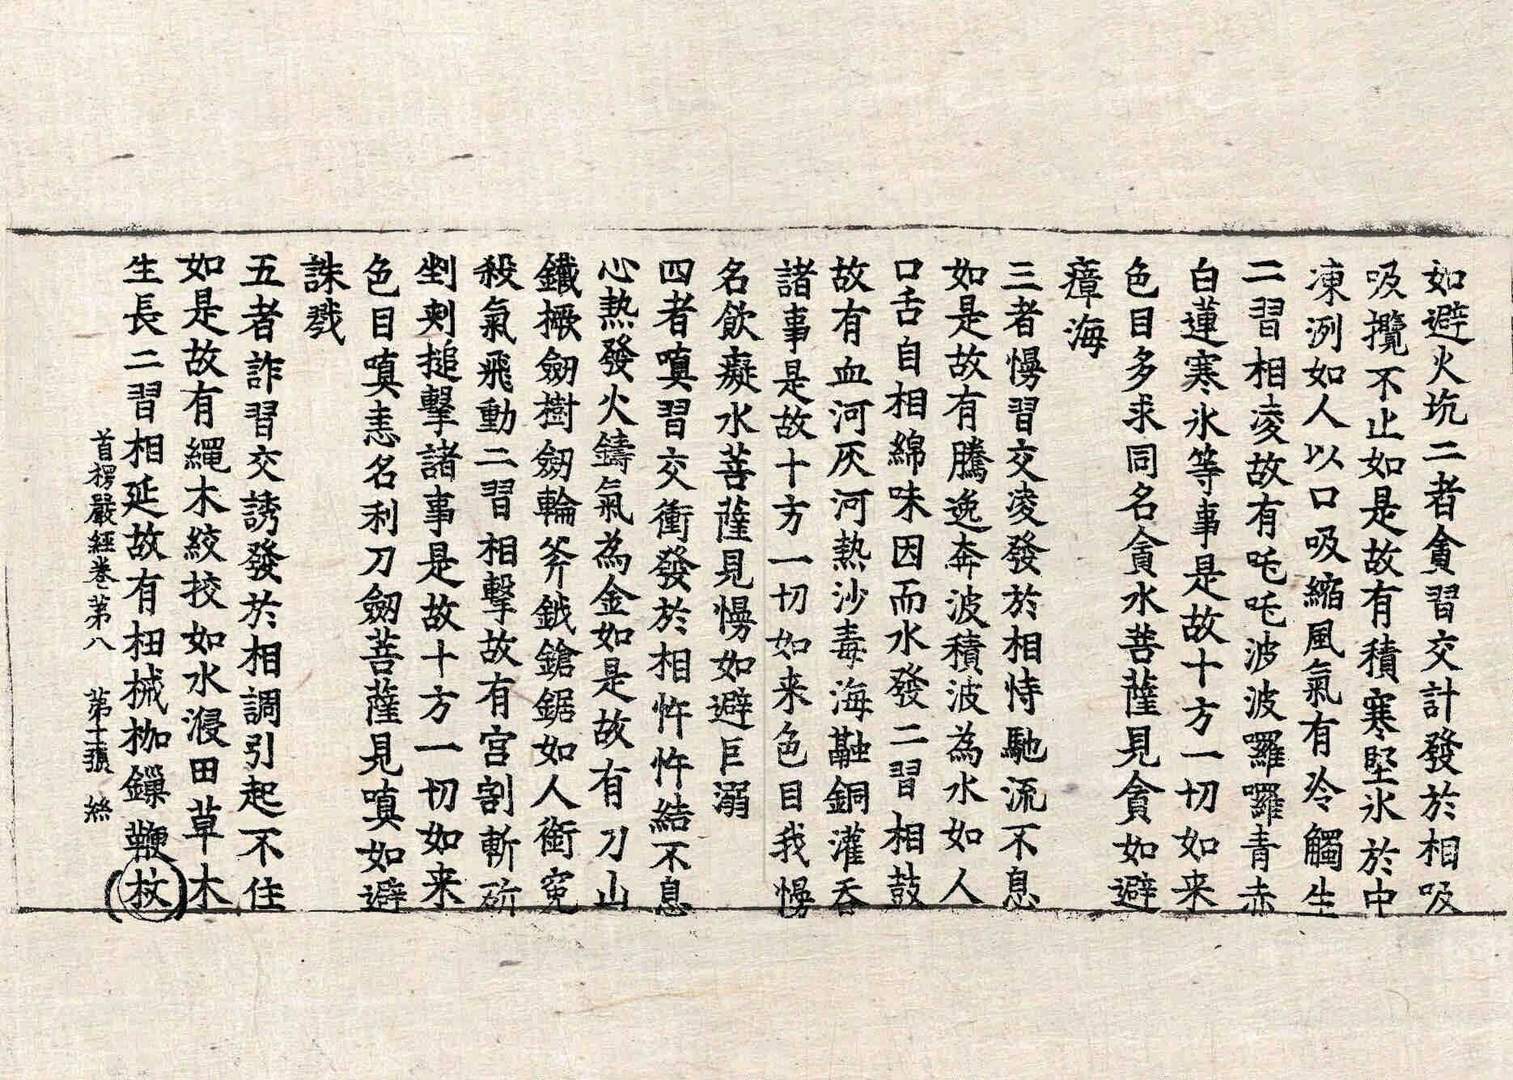 如避火坑二者貪習交計發於相吸
吸攬不止如是故有積寒堅氷於中
凍冽如人以口吸縮風氣有冷觸生
二習相凌故有吒吒波波羅囉青赤
白蓮寒氷等事是故十方一切如来
色目多求同名貪水菩薩見貪如避
瘴海
三者慢習交凌發於相恃馳流不息
如是故有騰逸奔波積波為水如人
口舌自相綿味因而水發二習相鼓
故有血河灰河熱沙毒海融銅灌吞
諸事是故十方一切如来色目我慢
名飲癡水菩薩見慢如避巨溺
四者嗔習交衝發於相忤忤結不息
心熱發火鑄氣為金如是故有刀山
鐵橛劒樹劒輪斧鉞鎗鋸如人銜寃
殺氣飛動二習相擊故有宫割斬斫
剉刺搥擊諸事是故十方一切如来
色目嗔恚名利刀劒菩薩見嗔如避
誅戮
五者詐習交誘發於相調引起不住
如是故有繩木絞挍如水浸田草木
生長二習相延故有杻械枷鏁鞭杖
首楞嚴經卷第八 第十二張 絲